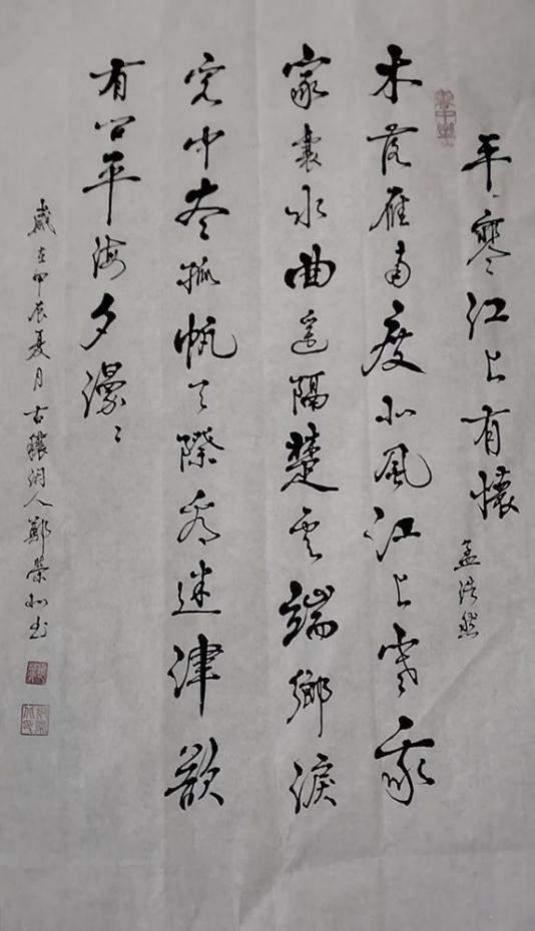 早寒江上有懷
孟浩然
木落雁南度北風江上寒我
家襄水曲遥隔楚云端鄉淚
客中尽孤帆天際看迷津欲
有问平海夕漫漫
歲在甲辰夏月古穰人鄭榮书